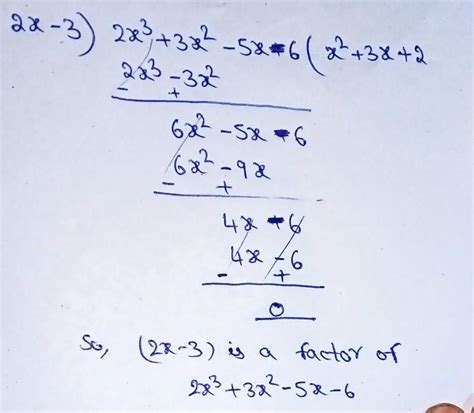 2x-3) 2x³+3x²-5x-6 ( x²+3x+2
2x³-3x²
- +
6x²-5x-6
6x²-9x
- +
4x-6
4x-6
- +
0
So, (2x-3) is a factor of
2x³+3x²-5x-6